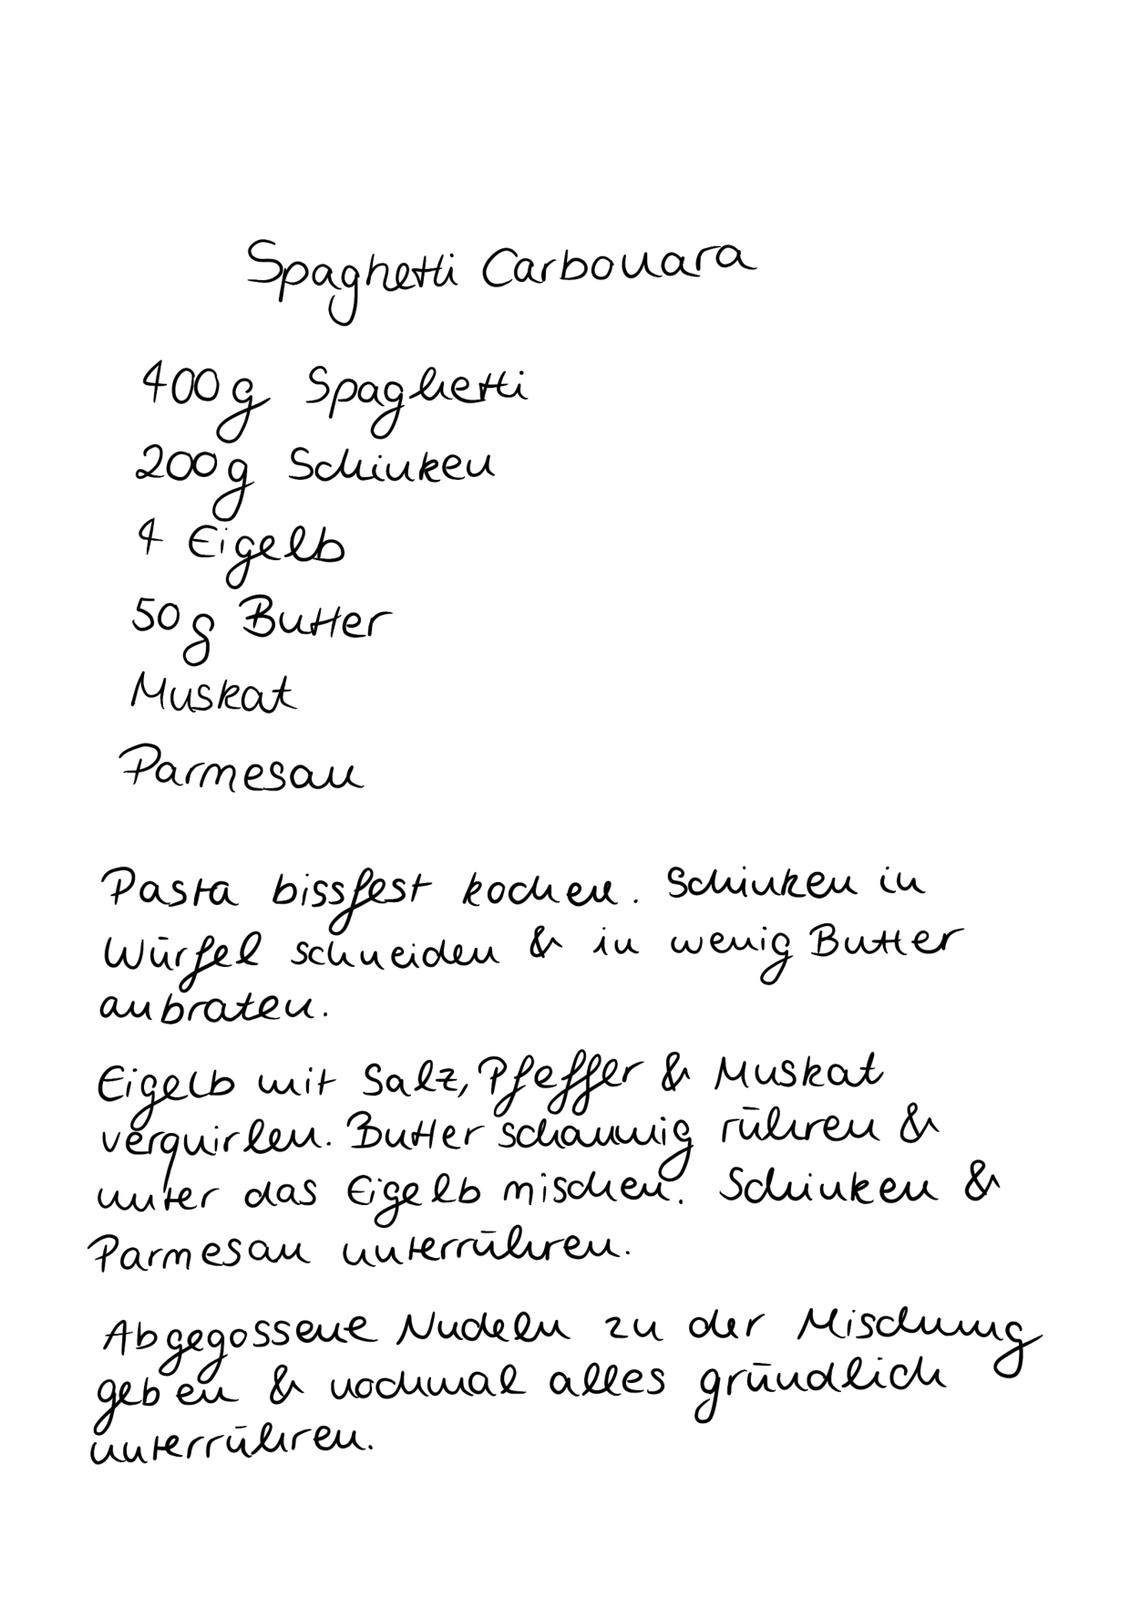 Spaghetti Carbonara
400g Spaghetti
200g Schinken
4 Eigelb
50g Butter
Muskat
Parmesan
Pasta bissfest kochen. Schinken in
Würfel schneiden & in wenig Butter
anbraten.
Eigelb mit Salz, Pfeffer & Muskat
verquirlen. Butter schaumig rühren &
unter das Eigelb mischen. Schinken &
Parmesan unterrühren.
Abgegossene Nudeln zu der Mischung
geben & nochmal alles gründlich
unterrühren.